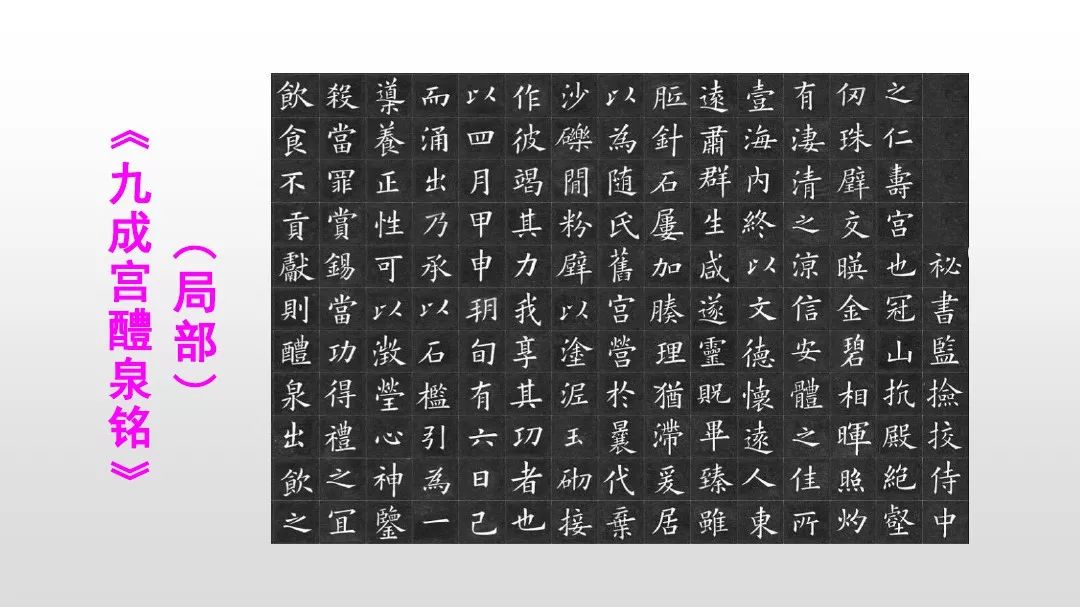 《九成宫醴泉铭》
（局部）
祕書監撿挍侍中
之仁壽宮也冠山抗殿絕壑
仞珠璧交暎金碧相暉照灼
有淒清之涼信安體之佳所
壹海內終以文德懷遠人東
遠肅群生咸遂靈貺畢臻雖
胝針石屢加腠理猶滯爰居
以為隨氏舊宮營於曩代棄
沙礫閒粉壁以塗泥玉砌接
作彼竭其力我享其功者也
以四月甲申朔旬有六日己
而涌出乃承以石檻引為一
導養正性可以澂瑩心神鑒
殺當罪賞錫當功得禮之宜
飲食不貢獻則醴泉出飲之